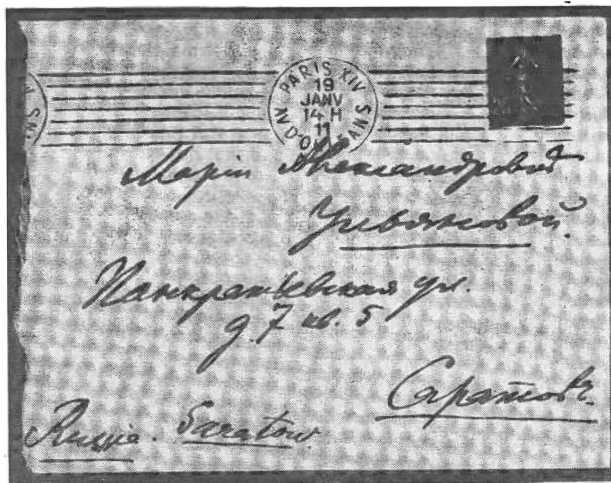 PARIS XIV
19
JANV
14 H
11
Маріи Александровнѣ
Ульяновой.
Панкратьевская ул.
д. 7 кв. 5
Саратовъ.
Russie. Saratow